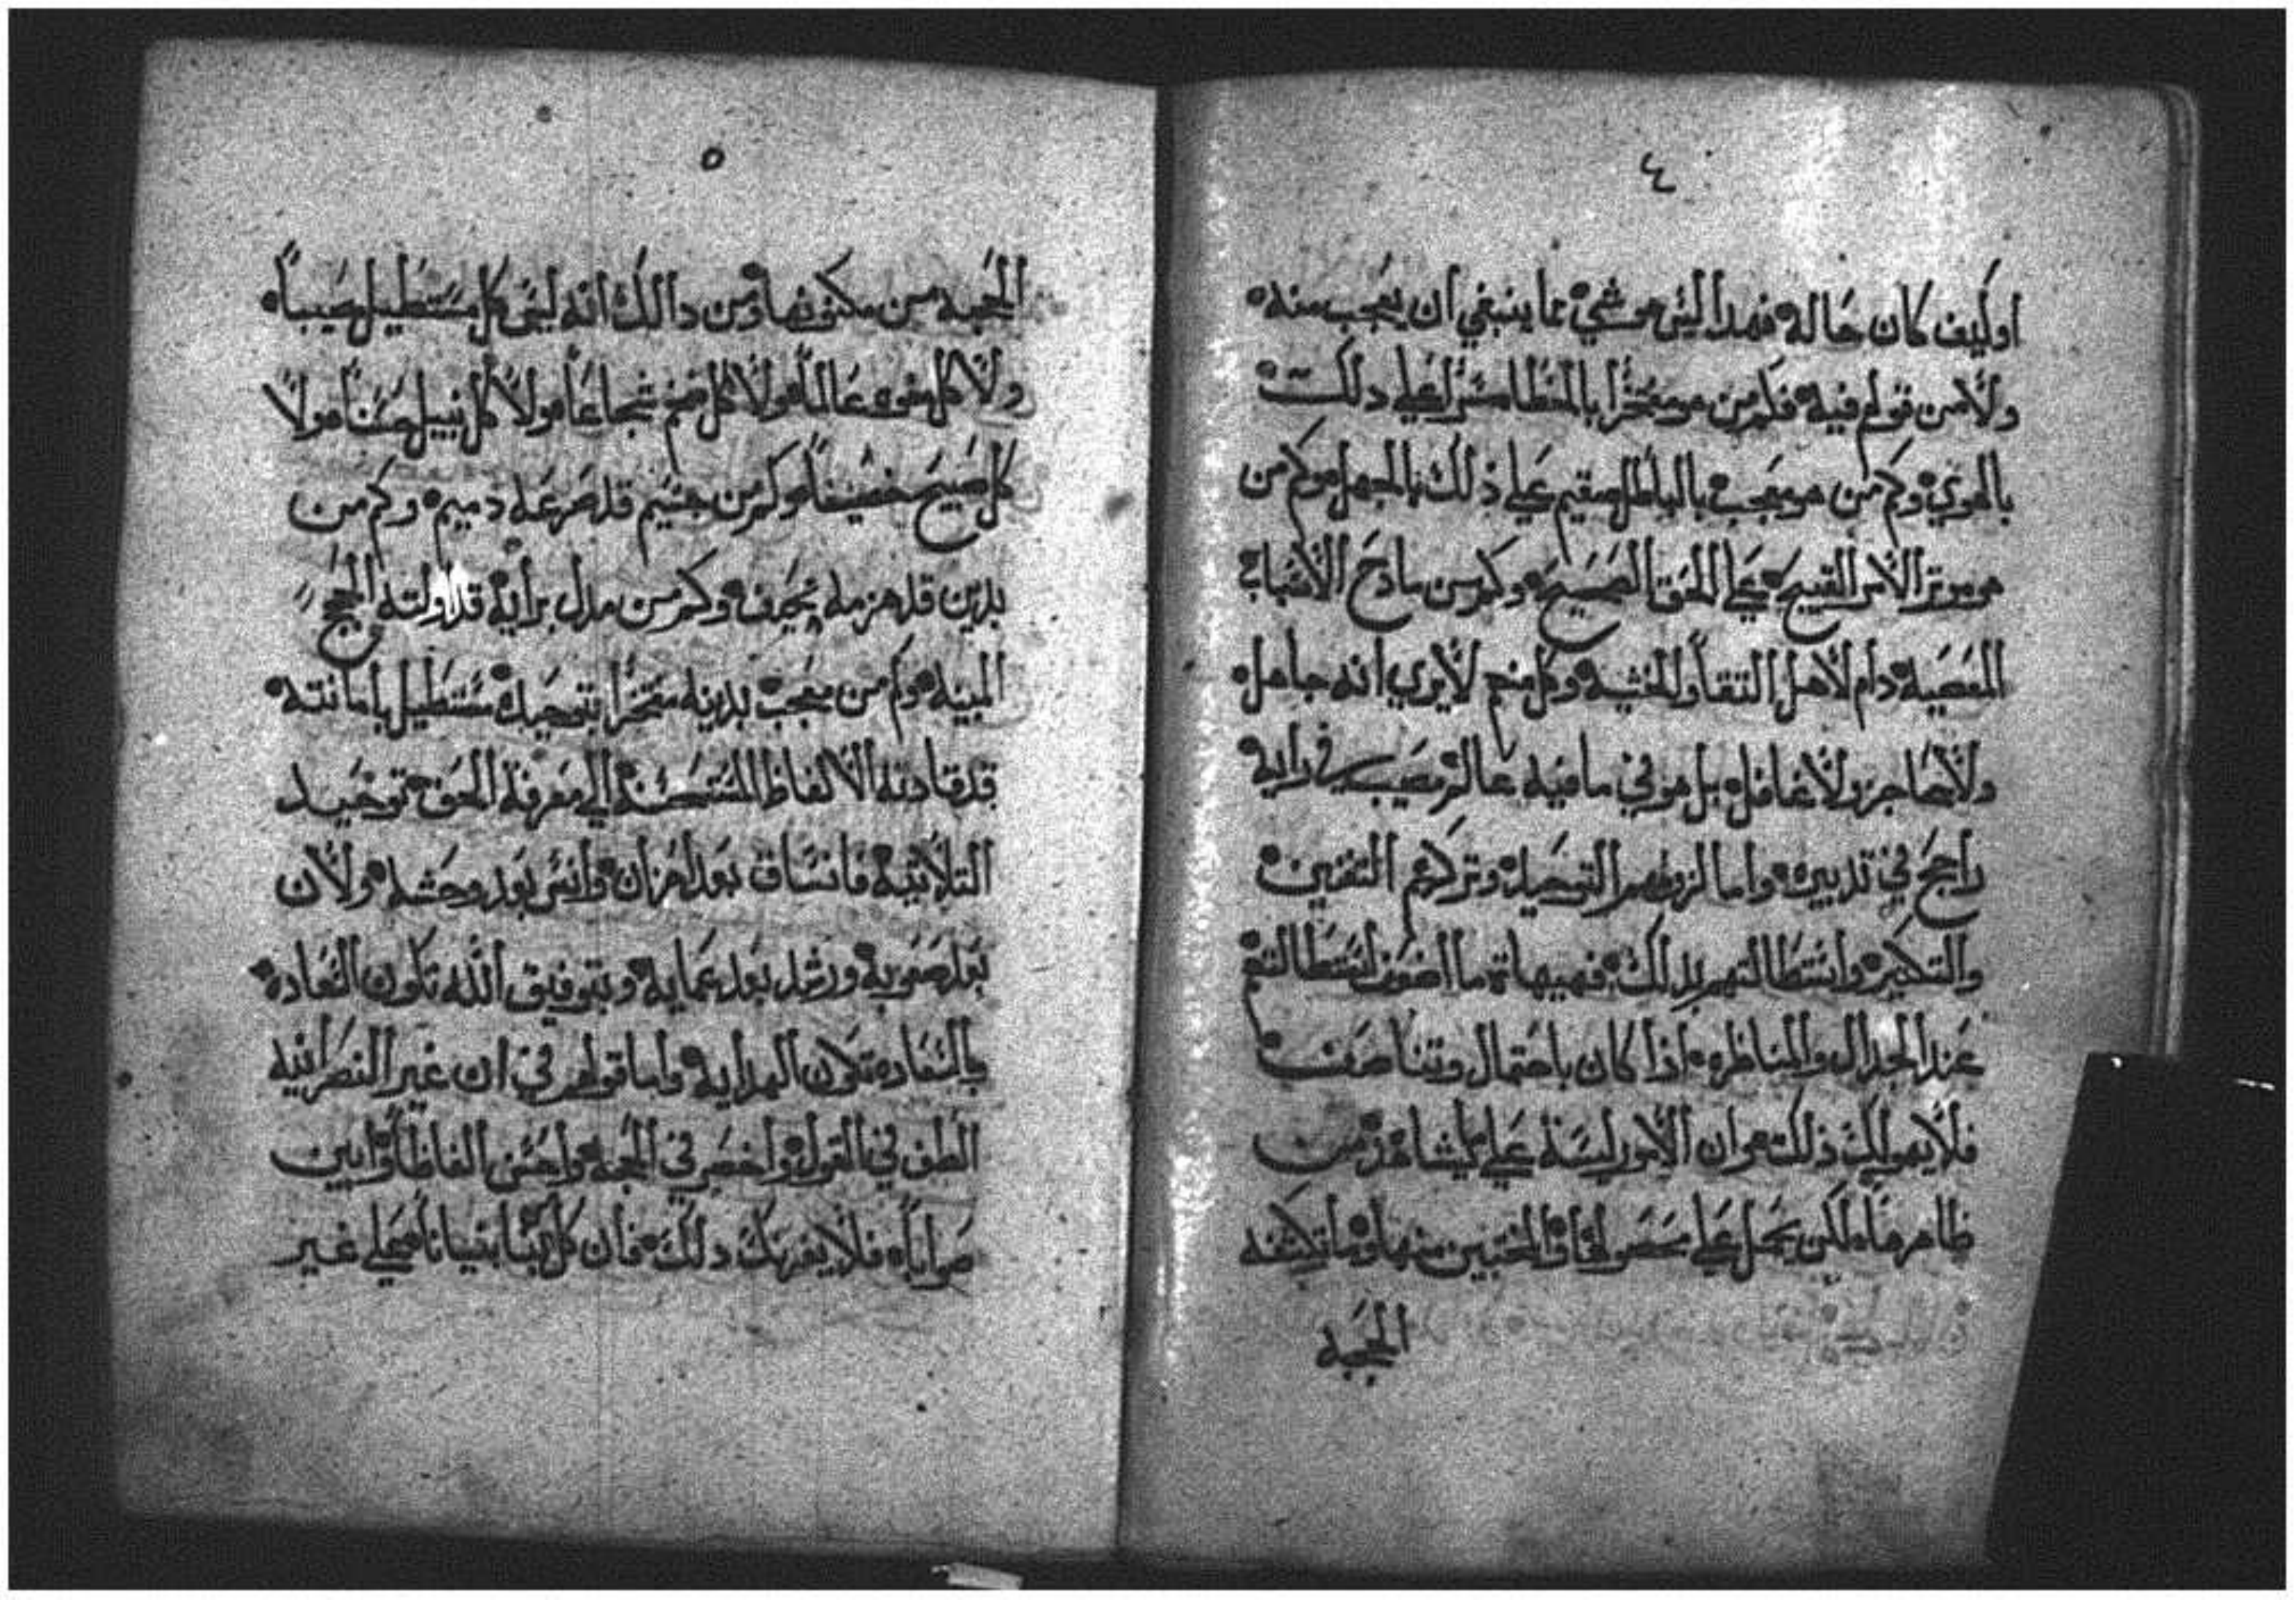 ٤
اوكيف كان حاله فهدا ليس هو شي مما ينبغي ان يعجب منه
ولا من قولهم فيه فكم من هو مفتخرا بالخطا مسترا علي دلك
بالهوي وكم من هو معجب بالباطل مقيم علي ذلك بالجهل وكم من
هو موتر الامر القبيح علي الحق الصحيح وكم من مادح الاصحاب
المعصيه دام لاهل التقا والخشيه وكل منهم لا يري انه جاهل
ولا عاجز ولا غافل بل هو في ما فيه عالم مصيب في رايه
راجح في تدبيره واما لزومهم التوحيد وتركهم التفنين
والتكثير واستطالتهم بدلك فهيهاة ما اضعف استطالتهم
عند الجدال والمناظره اذا كان باحتمال وتناصف
فلا يهولك ذلك من ان الامور ليسة علي مايشاهد من
ظاهرها لكن يحمل علي المختبين منها وما تكشفه
الحجبه
٥
الحجبه من مكنونها ومن دالك انه ليس كل مستطيل مصيباً
ولا كل مفوه عالماً ولا كل ضخم شجاعاً ولا كل نبيل حسناً ولا
كل صبيح خصيفاً وكم من جسيم قد صرعه دميم وكم من
بدين قد هزمه نحيف وكم من مدل برايه قد اولته الحجج
المبيه وكم من معجب بدينه مفتخرا بتوحيده مستطيل بامانته
قد قادته الالفاظ المستحسنه الي معرفة الحق توحيد
التلاتيه فانساق بعد احزان وانس بعد وحشه ولان
بعد صعوبه ورشد بعد عمايه وبتوفيق الله تكون السعاده
بالسعاده تكون الهدايه واما قولهم في ان غير النصرانيه
الطف في القول واخصر في الحجه واحسن الفاظاً وابين
صواباً فلا يغرنك دلك فان كل من بنا بنياناً علي غير